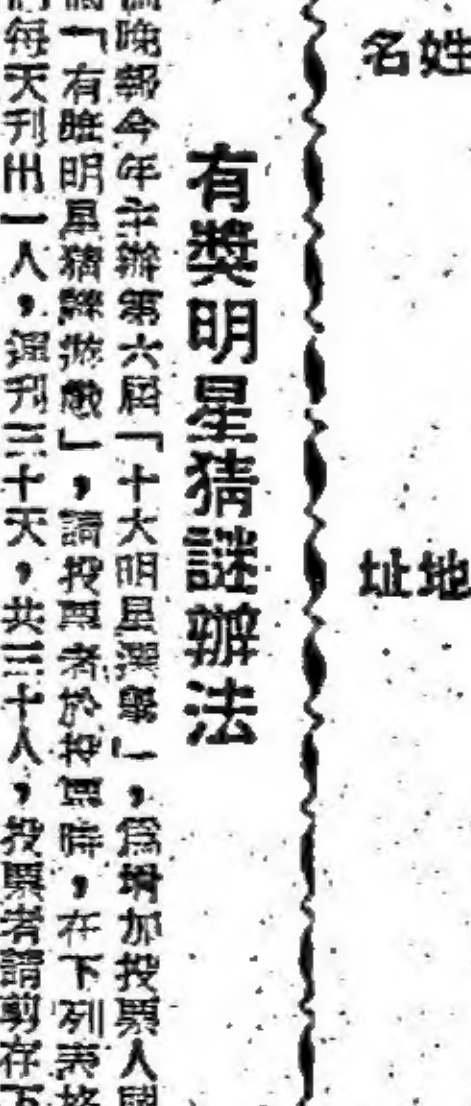 姓名
地址
有獎明星猜謎辦法
晚報今年主辦第六屆「十大明星選舉」，爲增加投票人
「有獎明星猜謎遊戲」，請投票者於投票時，在下列表格
每天刊出一人，連刊三十天，共三十人，投票者請剪存下